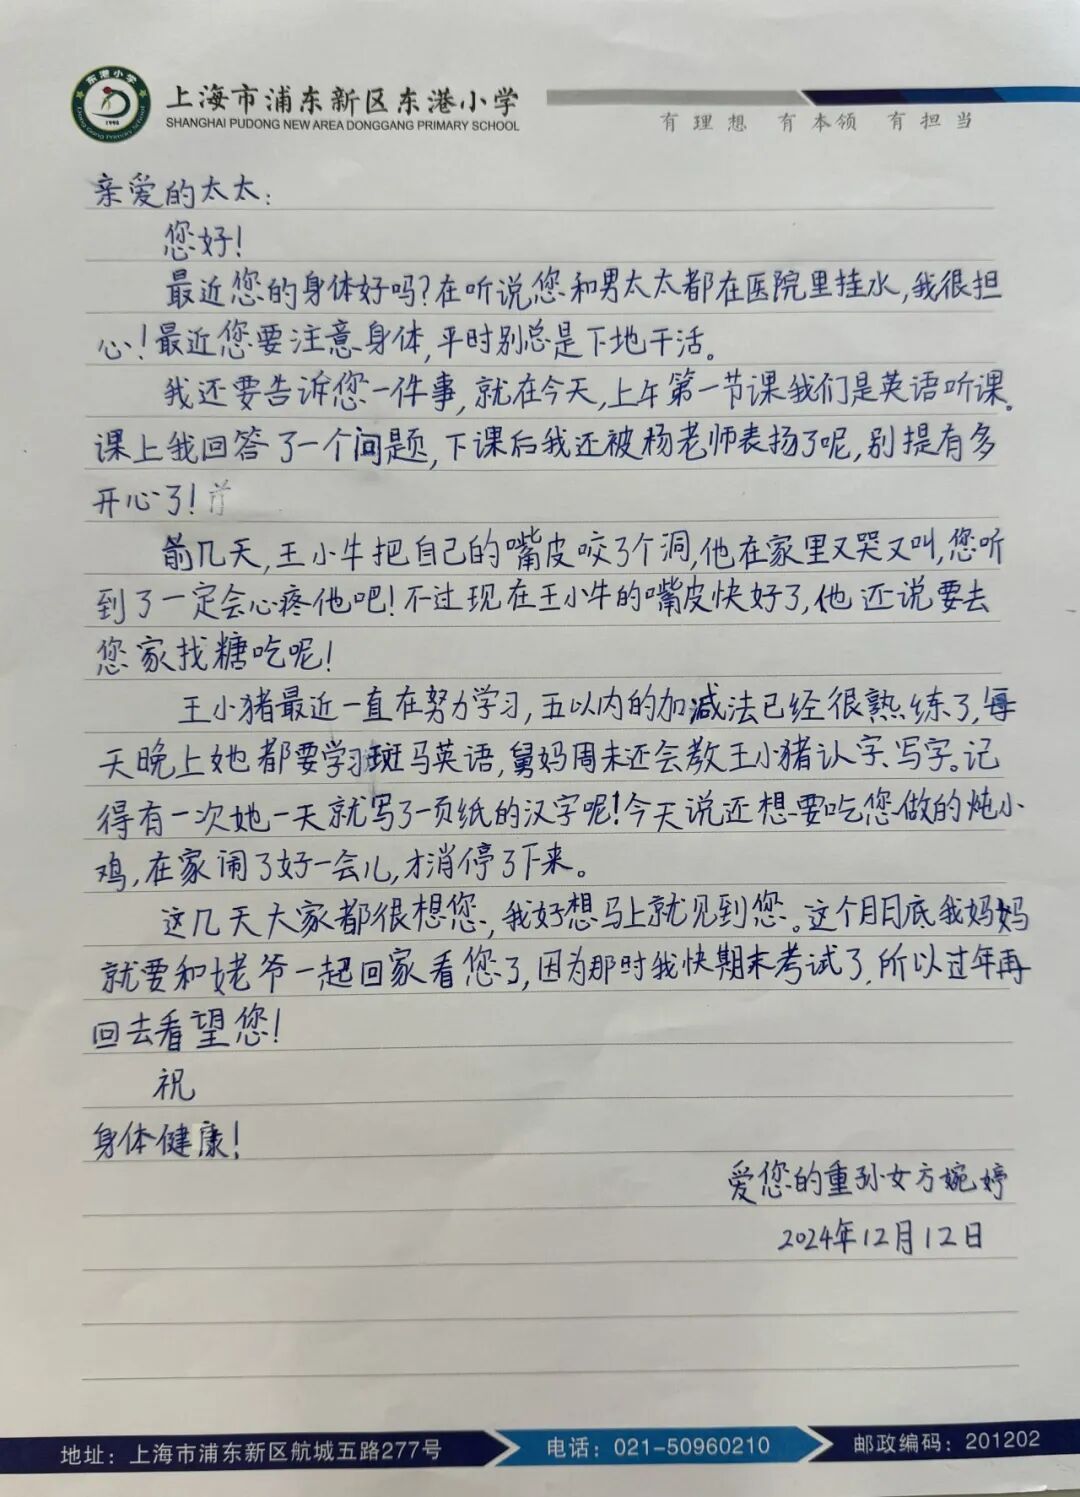 东港小学
Dong Gang Primary School
1996
上海市浦东新区东港小学
SHANGHAI PUDONG NEW AREA DONGGANG PRIMARY SCHOOL
有理想 有本领 有担当
亲爱的太太：
您好！
最近您的身体好吗？在听说您和男太太都在医院里挂水，我很担
心！最近您要注意身体，平时别总是下地干活。
我还要告诉您一件事，就在今天，上午第一节课我们是英语听课。
课上我回答了一个问题，下课后我还被杨老师表扬了呢，别提有多
开心了！
前几天，王小牛把自己的嘴皮咬了个洞，他在家里又哭又叫，您听
到了一定会心疼他吧！不过现在王小牛的嘴皮快好了，他还说要去
您家找糖吃呢！
王小猪最近一直在努力学习，五以内的加减法已经很熟练了，每
天晚上她都要学习斑马英语，舅妈周末还会教王小猪认字、写字。记
得有一次她一天就写了一页纸的汉字呢！今天说还想要吃您做的炖小
鸡，在家闹了好一会儿，才消停了下来。
这几天大家都很想您，我好想马上就见到您。这个月月底我妈妈
就要和姥爷一起回家看您了，因为那时我快期末考试了，所以过年再
回去看望您！
祝
身体健康！
爱您的重孙女方婉婷
2024年12月12日
地址：上海市浦东新区航城五路277号
电话：021-50960210
邮政编码：201202